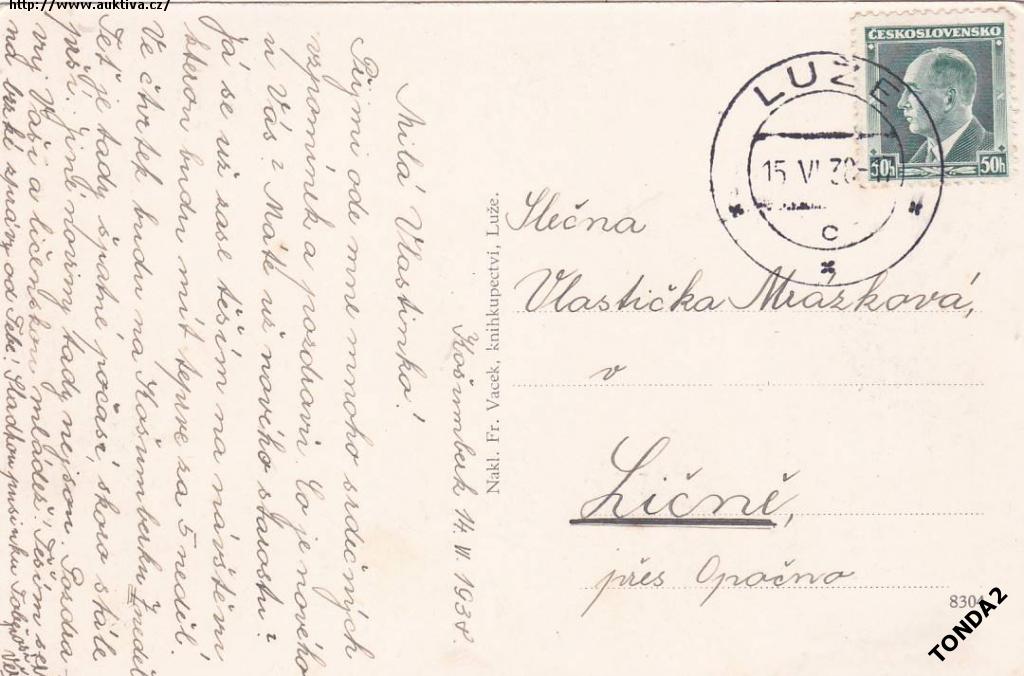 http://www.auktiva.cz/
Košumberk 14. VI. 1938.
Milá Vlastinko!
Přijmi ode mne mnoho srdečných
vzpomínek a pozdravů. Co je nového
u Vás? Máte už nového starostu?
Já se už zase těším na návštěvu
kterou budu mít teprve za 5 neděl.
Ve čtvrtek budu na Košumberku 7 neděl
Teď je tady špatné počasí, skoro stále
prší. Jiné noviny tady nejsou. Pozdra-
vuj Vaši a ličenskou mládež! Těším se
na brzké zprávy od Tebe! Sladkou pusinku
Nakl. Fr. Vacek, knihkupectví, Luže.
ČESKOSLOVENSKO
50h 50h
LUŽE
15. VI. 38
c
Slečna
Vlastička Mrázková,
v
Ličně,
přes Opočno
8304
TONDA2